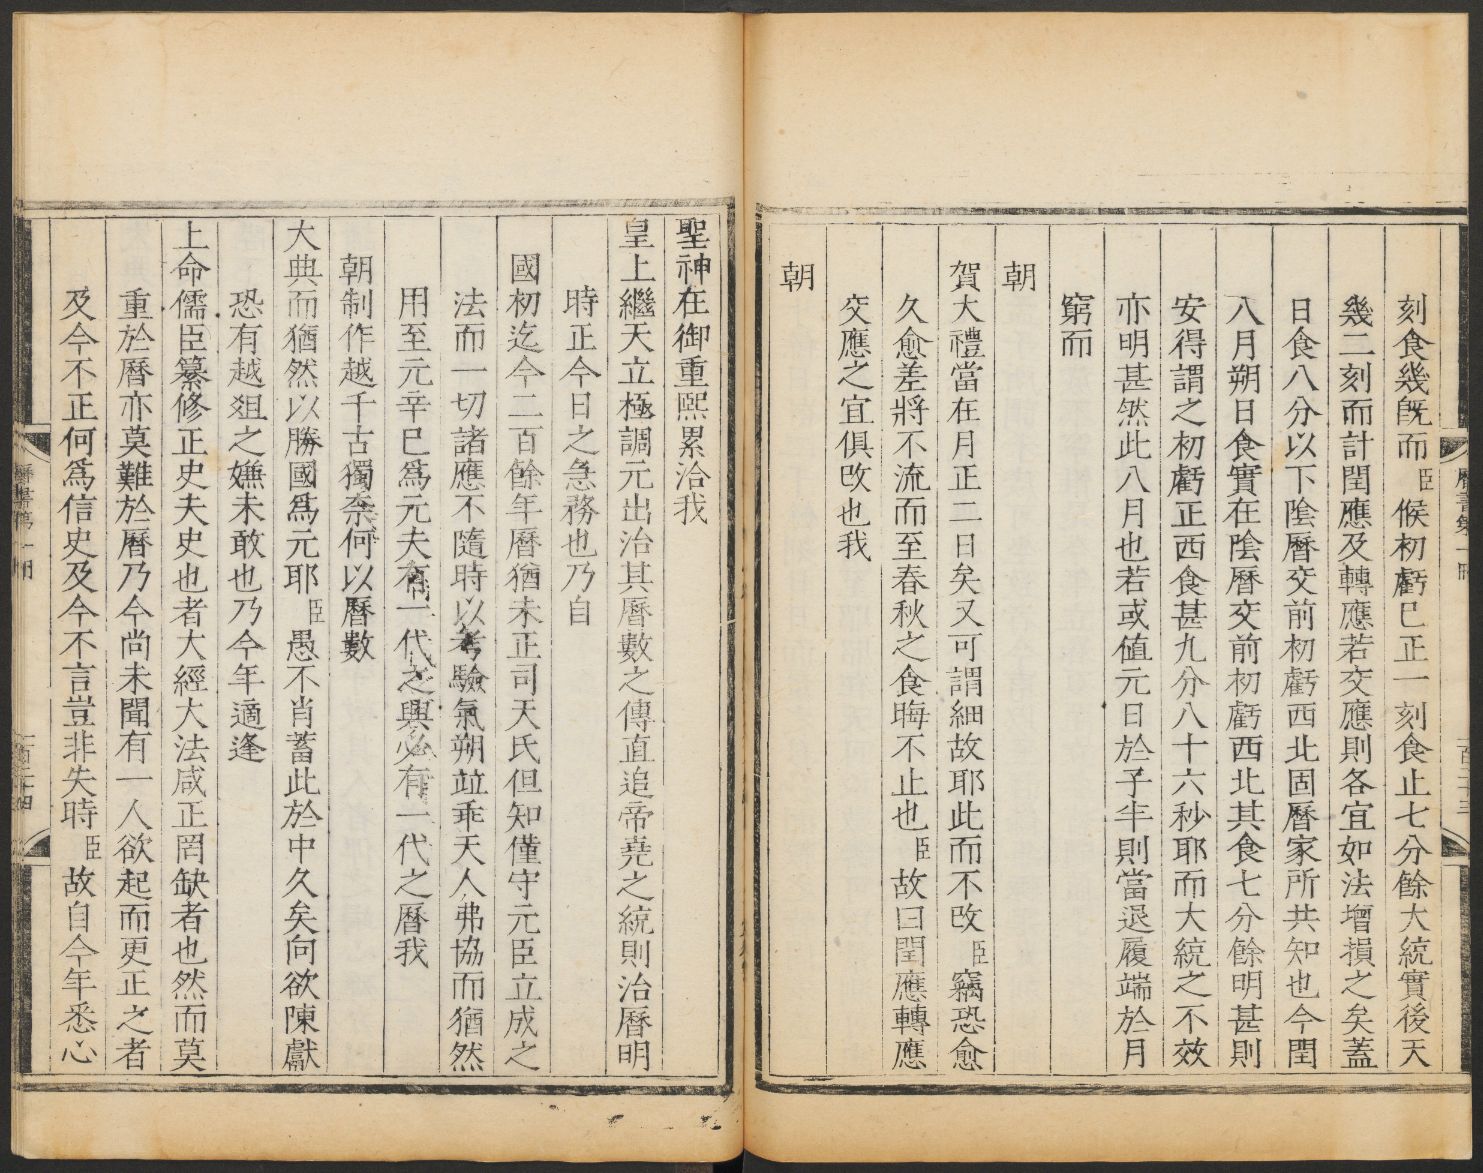 刻食幾旣而臣候初虧巳正一刻食止七分餘大統實後天
幾二刻而計閏應及轉應若交應則各宜如法增損之矣蓋
日食八分以下陰曆交前初虧西北固曆家所共知也今閏
八月朔日食實在陰曆交前初虧西北其食七分餘明甚則
安得謂之初虧正西食甚九分八十六秒耶而大統之不效
亦明甚然此八月也若或値元日於子半則當退履端於月
窮而
朝
賀大禮當在月正二日矣又可謂細故耶此而不改臣竊恐愈
久愈差將不流而至春秋之食晦不止也臣故曰閏應轉應
交應之宜俱改也我
朝
聖神在御重熙累洽我
皇上繼天立極調元出治其曆數之傳直追帝堯之統則治曆明
時正今日之急務也乃自
國初迄今二百餘年曆猶未正司天氏但知僅守元臣立成之
法而一切諸應不隨時以考驗氣朔竝乖天人弗協而猶然
用至元辛巳爲元夫有一代之興必有一代之曆我
朝制作越千古獨奈何以曆數
大典而猶然以勝國爲元耶臣愚不肖蓄此於中久矣向欲陳獻
恐有越俎之嫌未敢也乃今年適逢
上命儒臣纂修正史夫史也者大經大法咸正罔缺者也然而莫
重於曆亦莫難於曆乃今尚未聞有一人欲起而更正之者
及今不正何爲信史及今不言豈非失時臣故自今年悉心